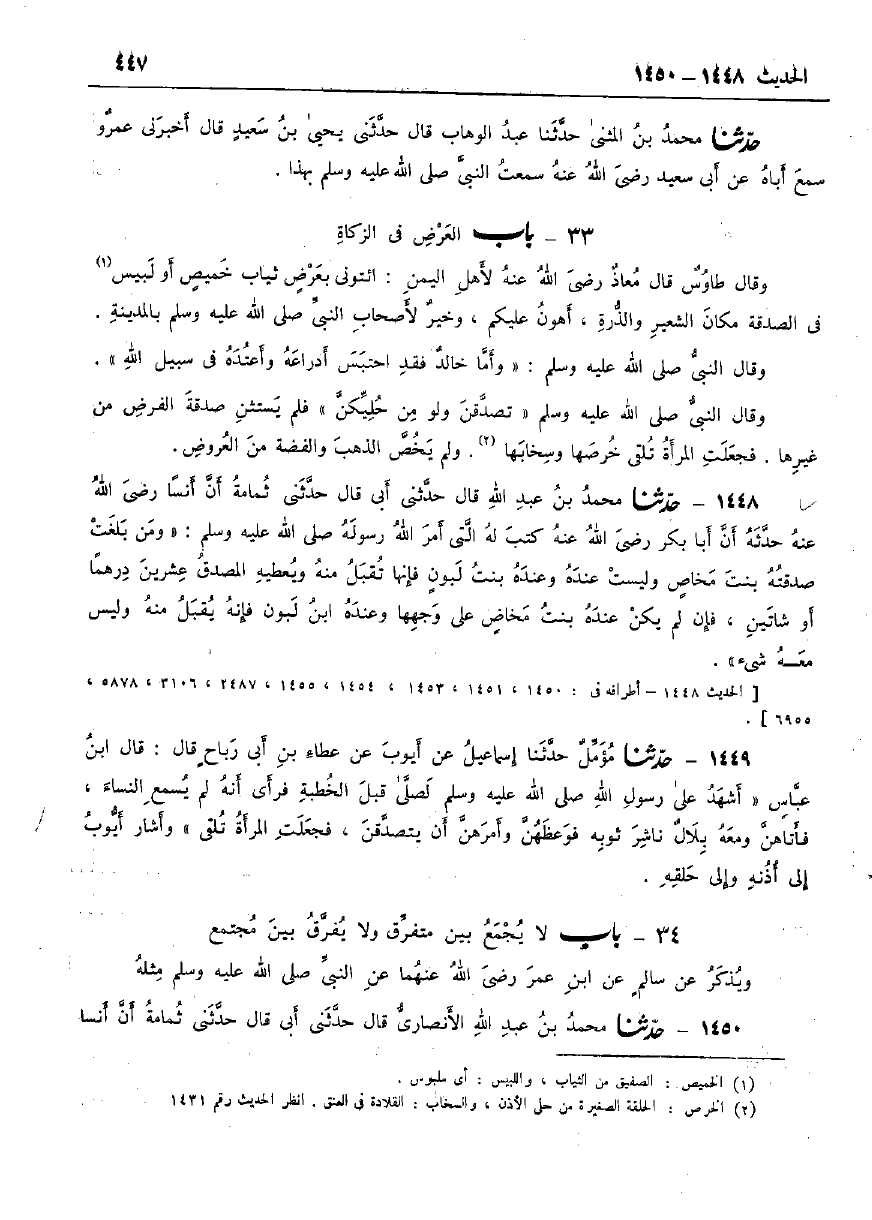 الحديث ١٤٤٨ – ١٤٥٠ ٤٤٧
حدّثنا محمدُ بنُ المثنىٰ حدَّثَنا عبدُ الوهاب قال حدَّثَنى يحيىٰ بنُ سَعيدٍ قال أخبرَنى عمرٌو
سمعَ أباهُ عن أبى سعيد رضىَ اللهُ عنهُ سمعتُ النبىَّ صلى الله عليه وسلم بهذا .
٣٣ – باب العَرْضِ فى الزكاةِ
وقال طاوُسٌ قال مُعاذٌ رضىَ اللهُ عنهُ لأهلِ اليمنِ : ائتونى بعَرْضٍ ثيابٍ خَميصٍ أو لَبيس(١)
فى الصدقة مكانَ الشعيرِ والذُّرةِ ، أهونُ عليكم ، وخيرٌ لأصحابِ النبىِّ صلى الله عليه وسلم بالمدينةِ .
وقال النبىُّ صلى الله عليه وسلم : « وأمَّا خالدٌ فقدِ احتبَسَ أدراعَهُ وأعتُدَهُ فى سبيلِ اللهِ » .
وقال النبىُّ صلى الله عليه وسلم « تصدَّقنَ ولو مِن حُلِيِّكنَّ » فلم يَستثنِ صدقةَ الفرضِ من
غيرِها . فجعَلَتِ المرأةُ تُلقى خُرصَها وسِخابَها (٢) . ولم يَخُصَّ الذهبَ والفضةَ منَ العُروضِ.
١٤٤٨ – حدّثنا محمدُ بنُ عبدِ اللهِ قال حدَّثَنى أبى قال حدَّثَنى ثُمامةُ أنَّ أنسًا رضىَ اللهُ
عنهُ حدَّثَهُ أنَّ أبا بكر رضىَ اللهُ عنهُ كتبَ لهُ الَّتى أمرَ اللهُ رسولَهُ صلى الله عليه وسلم : « ومَن بَلغَتْ
صدقتُهُ بنتَ مَخاضٍ وليستْ عندَهُ وعندَهُ بنتُ لَبونٍ فإنها تُقبَلُ منهُ ويُعطيهِ المصدقُ عِشرينَ دِرهما
أو شاتَينِ ، فإن لم يكنْ عندَهُ بنتُ مَخاضٍ على وَجهِها وعندَهُ ابنُ لَبون فإنهُ يُقبَلُ منهُ وليس
معَـهُ شىء» .
[ الحديث ١٤٤٨ – أطرافه فى : ١٤٥٠ ، ١٤٥١ ، ١٤٥٣ ، ١٤٥٤ ، ١٤٥٥ ، ٢٤٨٧ ، ٣١٠٦ ، ٥٨٧٨ ،
٦٩٥٥ ] .
١٤٤٩ – حدّثنا مُؤَمِّلٌ حدَّثَنا إسماعيلُ عن أيوبَ عن عطاءِ بنِ أبى رَباحٍ قال : قال ابنُ
عبَّاسٍ « أشهَدُ علىٰ رسولِ اللهِ صلى الله عليه وسلم لَصلَّىٰ قبلَ الخُطبةِ فرأى أنهُ لم يُسمعِ النساءَ ،
فأتاهنَّ ومعَهُ بِلالٌ ناشِرَ ثوبِه فوَعظَهُنَّ وأمرَهنَّ أن يتصدَّقنَ ، فجعَلَتِ المرأةُ تُلقى » وأشار أيُّوبُ
إلى أُذُنهِ وإلى حَلقِهِ .
٣٤ – باب لا يُجْمَعُ بين متفرِّق ولا يُفرَّقُ بينَ مُجتمع
ويُذكَرُ عن سالمٍ عنِ ابنِ عمرَ رضىَ اللهُ عنهُما عنِ النبىِّ صلى الله عليه وسلم مِثلهُ
١٤٥٠ – حدّثنا محمدُ بنُ عبدِ اللهِ الأنصارىُّ قال حدَّثَنى أبى قال حدَّثَنى ثُمامةُ أنَّ أنسا
(١) الخميص : الصفيق من الثياب ، واللبيس : أى ملبوس .
(٢) الخرص : الحلقة الصغيرة من حلى الأذن ، والسخاب : القلادة فى العنق . انظر الحديث رقم ١٤٣١